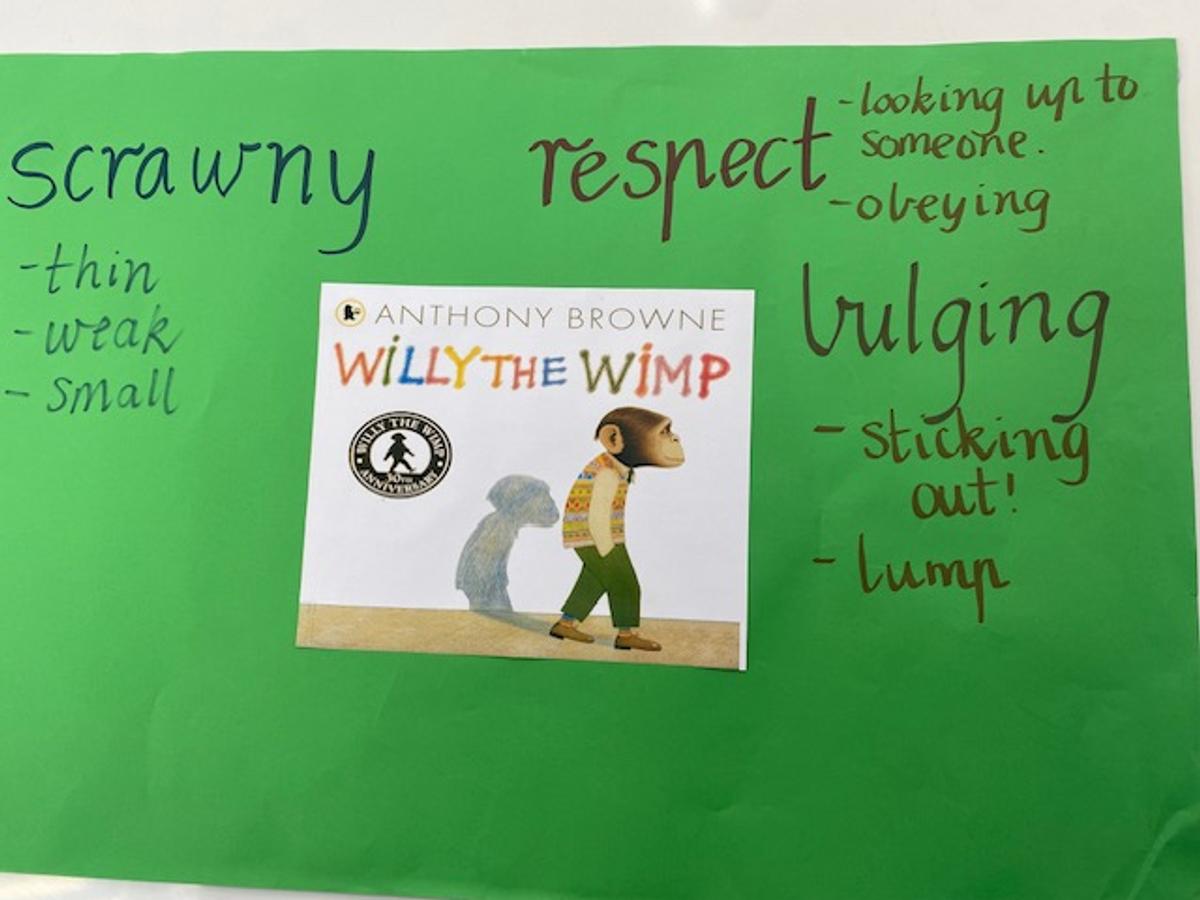 scrawny
-thin
-weak
- small
respect
-looking up to
someone.
-obeying
bulging
- sticking
out!
- lump
ANTHONY BROWNE
WiLLY THE WiMP
WILLY THE WIMP
30TH
ANNIVERSARY